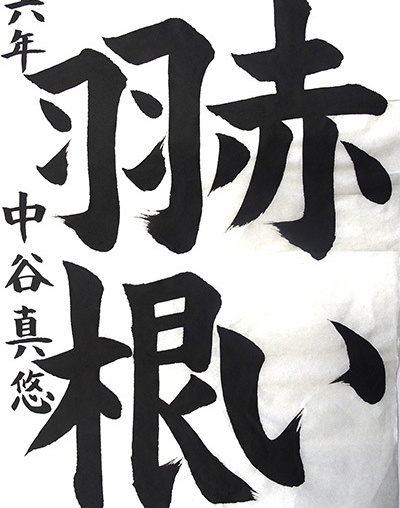 赤い
羽根
六年 中谷真悠